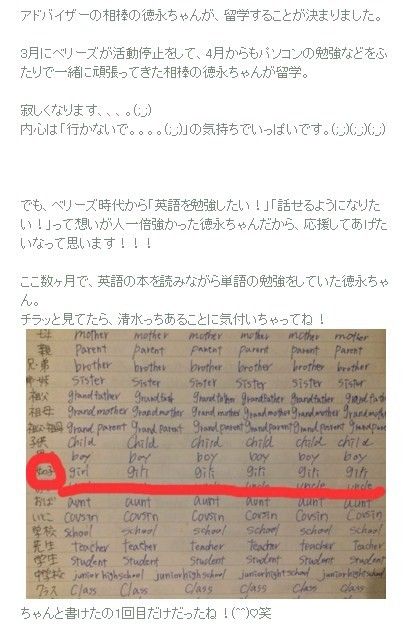 アドバイザーの相棒の徳永ちゃんが、留学することが決まりました。
3月にベリーズが活動停止をして、4月からもパソコンの勉強などをふ
たりで一緒に頑張ってきた相棒の徳永ちゃんが留学。
寂しくなります、、、。(;_;)
内心は「行かないで。。。。(;_;)」の気持ちでいっぱいです。(;_;)(;_;)(;_;)
でも、ベリーズ時代から「英語を勉強したい！」「話せるようになりた
い！」って想いが人一倍強かった徳永ちゃんだから、応援してあげた
いなって思います！！！
ここ数ヶ月で、英語の本を読みながら単語の勉強をしていた徳永ちゃ
ん。
チラッと見てたら、清水っちあることに気付いちゃってね！
母 mother mother mother mother mother mother
親 parent parent parent parent parent parent
兄弟 brother brother brother brother brother brother
姉妹 sister sister sister sister sister sister
祖父 grandfather grandfather grandfather grandfather grandfather
祖母 grandmother grandmother grandmother grandmother grandmother
祖父・祖母 grand parent grand parent grand parent grand parent grand parent
子供 child child child child child
boy boy boy boy boy
女子 girl giti giti giti giti
uncle uncle
おば aunt aunt aunt aunt aunt
いとこ cousin cousin cousin cousin cousin
学校 school school school school school
先生 teacher teacher teacher teacher teacher
学生 student student student student student
中学校 junior high school junior high school junior high school junior high school
クラス class class class class class
ちゃんと書けたの1回目だけだったね！(^^)♡笑